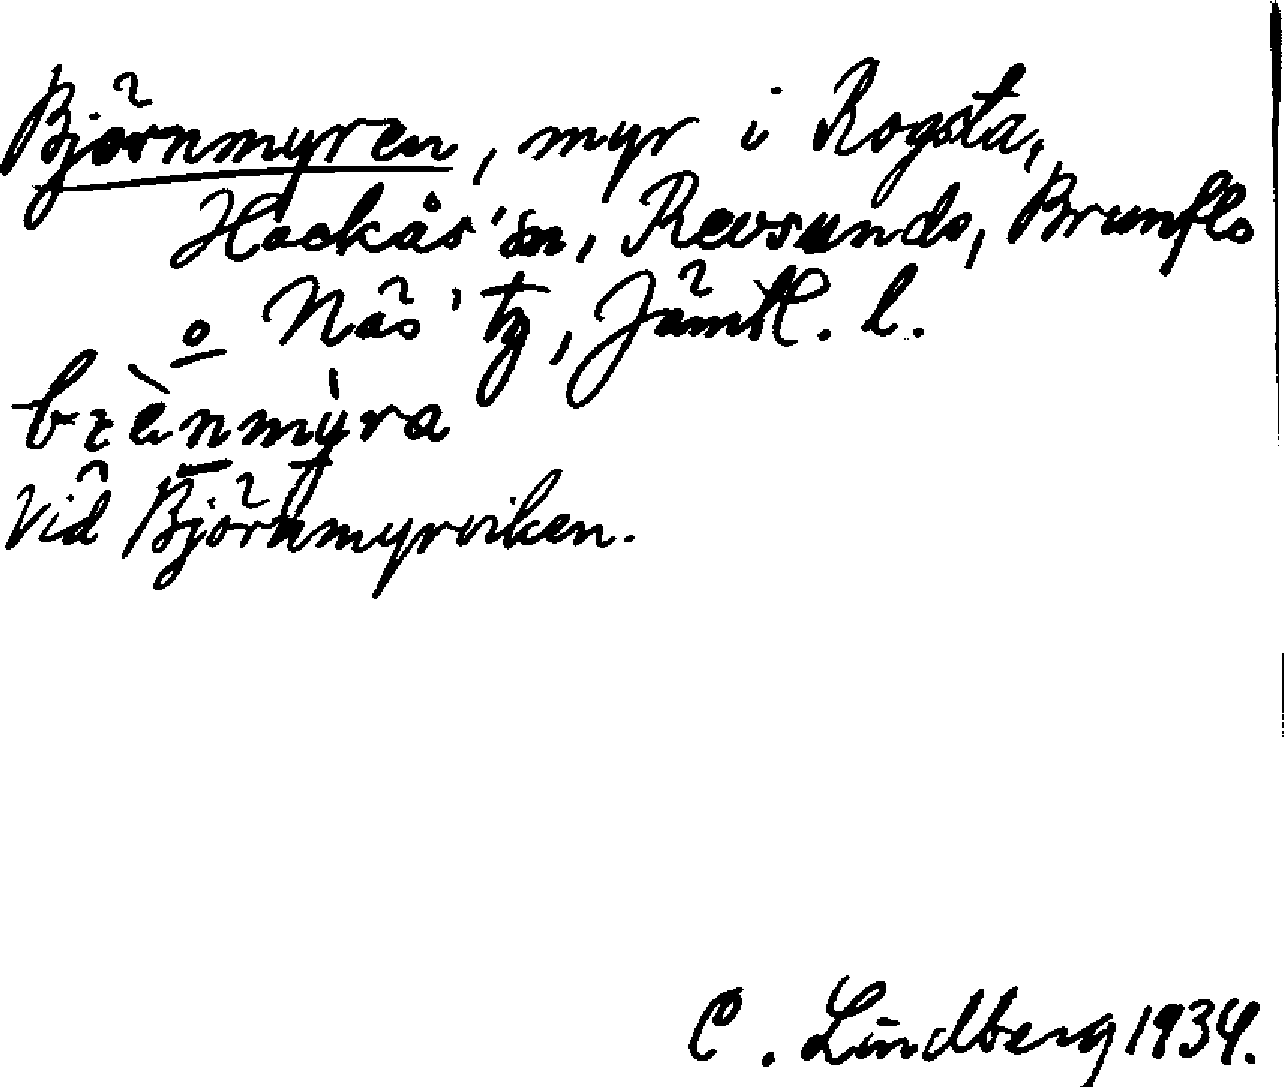 Björnmyren, myr i Rogsta,
Hackås' sn, Revsunds, Brunflo
o Näs' tg, Jämtl. l.
Vid Björnmyrviken.
C. Lindberg 1934.